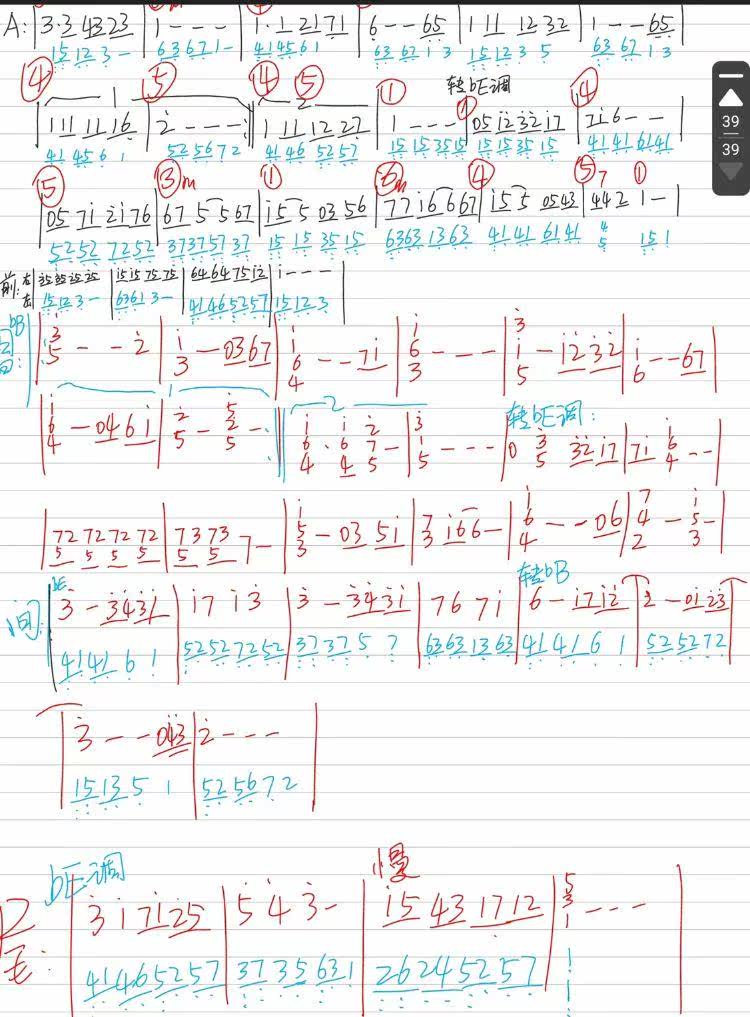 A: |3·3 4323|1 - - -|1·1 2171|6 - - 65|111 1232|1 - - 65|
1512 3 -|6367 1 -|4145 6 1|63 62 1 3|1512 3 5|63 67 1 3
④ 1 ⑤ ④ 2 ⑤ ① 转bE调 ① ④
|111 1116|2 - - -:||1 11 12 27|1 - - -|05 12 32 17|71 6 - -|
41 45 6 1|52 56 7 2|41 46 52 57|15 15 35 15|15 15 35 15|41 41 61 41
⑤ ③m ① ⑥m ④ ⑤7 ①
|05 71 21 76|67 5 5 67|15 5 03 56|77 16 6 67|15 5 05 43|44 2 1 -|
52 52 72 52|37 37 57 37|15 15 35 15|63 63 13 63|41 41 61 41|4 5 15 1
前: 右 35 35 25 25|15 15 75 75|64 64 75 12|1 - - -|
左 1512 3 -|6361 3 -|41 46 52 57|15 12 3
bB
|1 3 5 - - 2|1 3 - 03 67|1 6 4 - - 71|1 6 3 - - -|3 1 5 - 12 32|1 6 - - 67|
1 2 转bE调:
|1 6 4 - 04 61|2 5 - 5 2 5 -:||1 6 4 · 1 6 4 2 7 5 -|3 1 5 - - -|0 3 5 32 17|71 1 6 4 - -
|72 72 72 72|73 73 7 -|1 5 3 - 03 51|7 3 16 6 -|1 6 4 - - 06|7 4 2 - 1 5 3 -|
5 5 5 5 5 5
间: bE 转bB
|3 - 34 31|1 7 1 3|3 - 34 31|7 6 7 1|6 - 17 12|2 - 01 23|
41 41 6 1|52 52 72 52|37 37 5 7|63 63 13 63|41 41 6 1|52 52 7 2
|3 - - 043|2 - - -|
15 13 5 1|52 56 7 2
bE调 慢
尾: |3 1 71 25|5 4 3 -|15 43 17 12|5 3 1 - - -|
41 46 52 57|37 35 63 1|26 24 52 57|1
39
39